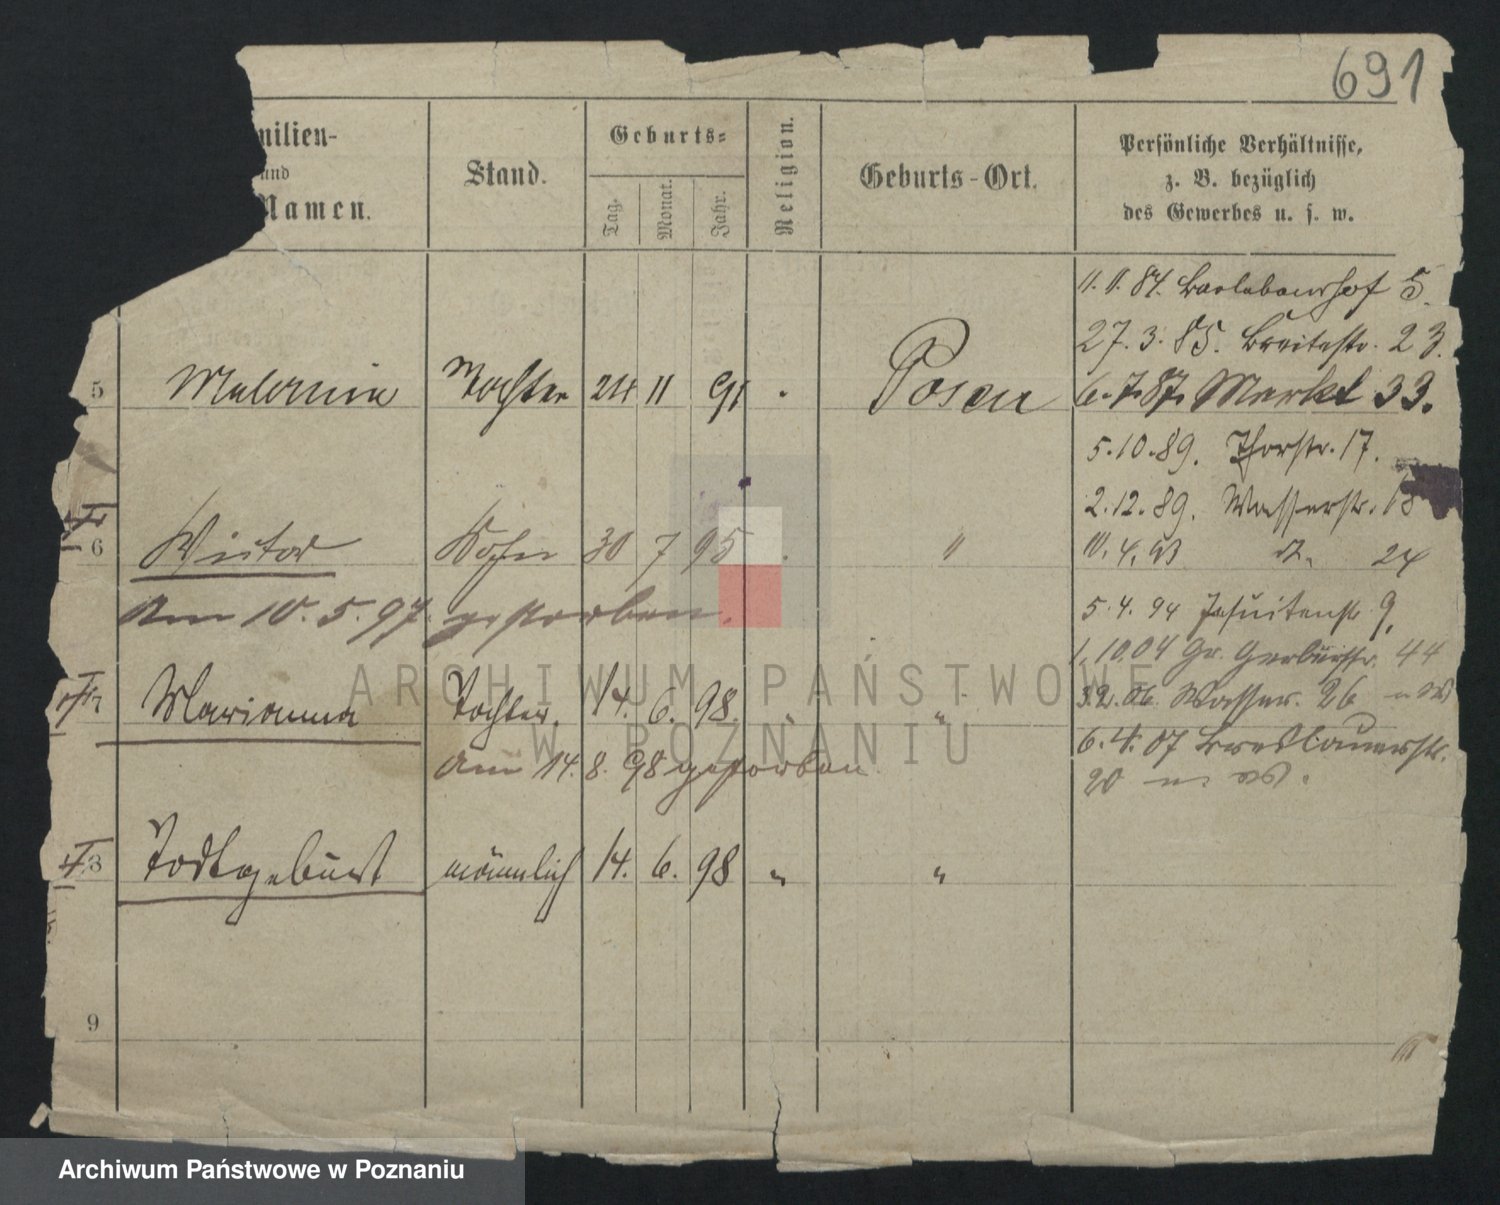 691
milien-
und
Namen.
Stand.
Geburts-
Tag.
Monat.
Jahr.
Religion.
Geburts-Ort.
Persönliche Verhältnisse,
z. B. bezüglich
des Gewerbes u. s. w.
11. 11. 84. Barlebenshof 5.
27. 3. 85. Breitestr. 23.
5 Melannia Tochter 24 11 91 Posen 6. 7. 87. Markt 33.
5. 10. 89. Thorstr. 17.
2. 12. 89. Wasserstr. 18
6 Victor Sohn 30 7 95 " 24
am 10. 5. 97. gestorben.
5. 4. 94 Jesuitenstr. 9.
1. 10 04 Gr. Gerberstr. 44
7 Marianna Tochter. 14. 6. 98. " " Wasser. 26
am 14. 8. 98 gestorben
6. 4. 07 Breslauerstr.
20
8 Todtgeburt männlich 14. 6. 98 " "
9
ARCHIWUM PAŃSTWOWE
W POZNANIU
Archiwum Państwowe w Poznaniu